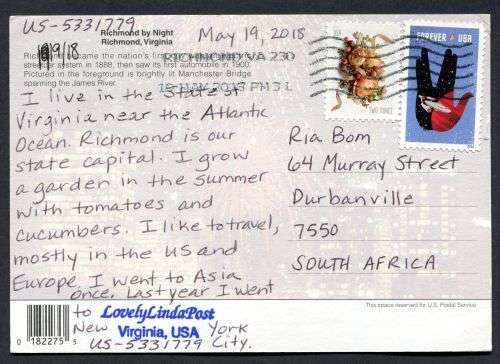 US-5331779
Richmond by Night
Richmond, Virginia
May 19, 2018
9/18
became the nation's first
streetcar system in 1888, then saw its first automobile in 1900.
Pictured in the foreground is brightly lit Manchester Bridge
spanning the James River.
RICHMOND VA 230
FOREVER USA
TWO OUNCE
I live in the State of
Virginia near the Atlantic
Ocean. Richmond is our
state capital. I grow
a garden in the summer
with tomatoes and
cucumbers. I like to travel,
mostly in the US and
Europe. I went to Asia
once. Last year I went
to New York City.
Ria Bom
64 Murray Street
Durbanville
7550
SOUTH AFRICA
This space reserved for U.S. Postal Service
LovelyLindaPost
Virginia, USA
US-5331779
0 182275 5